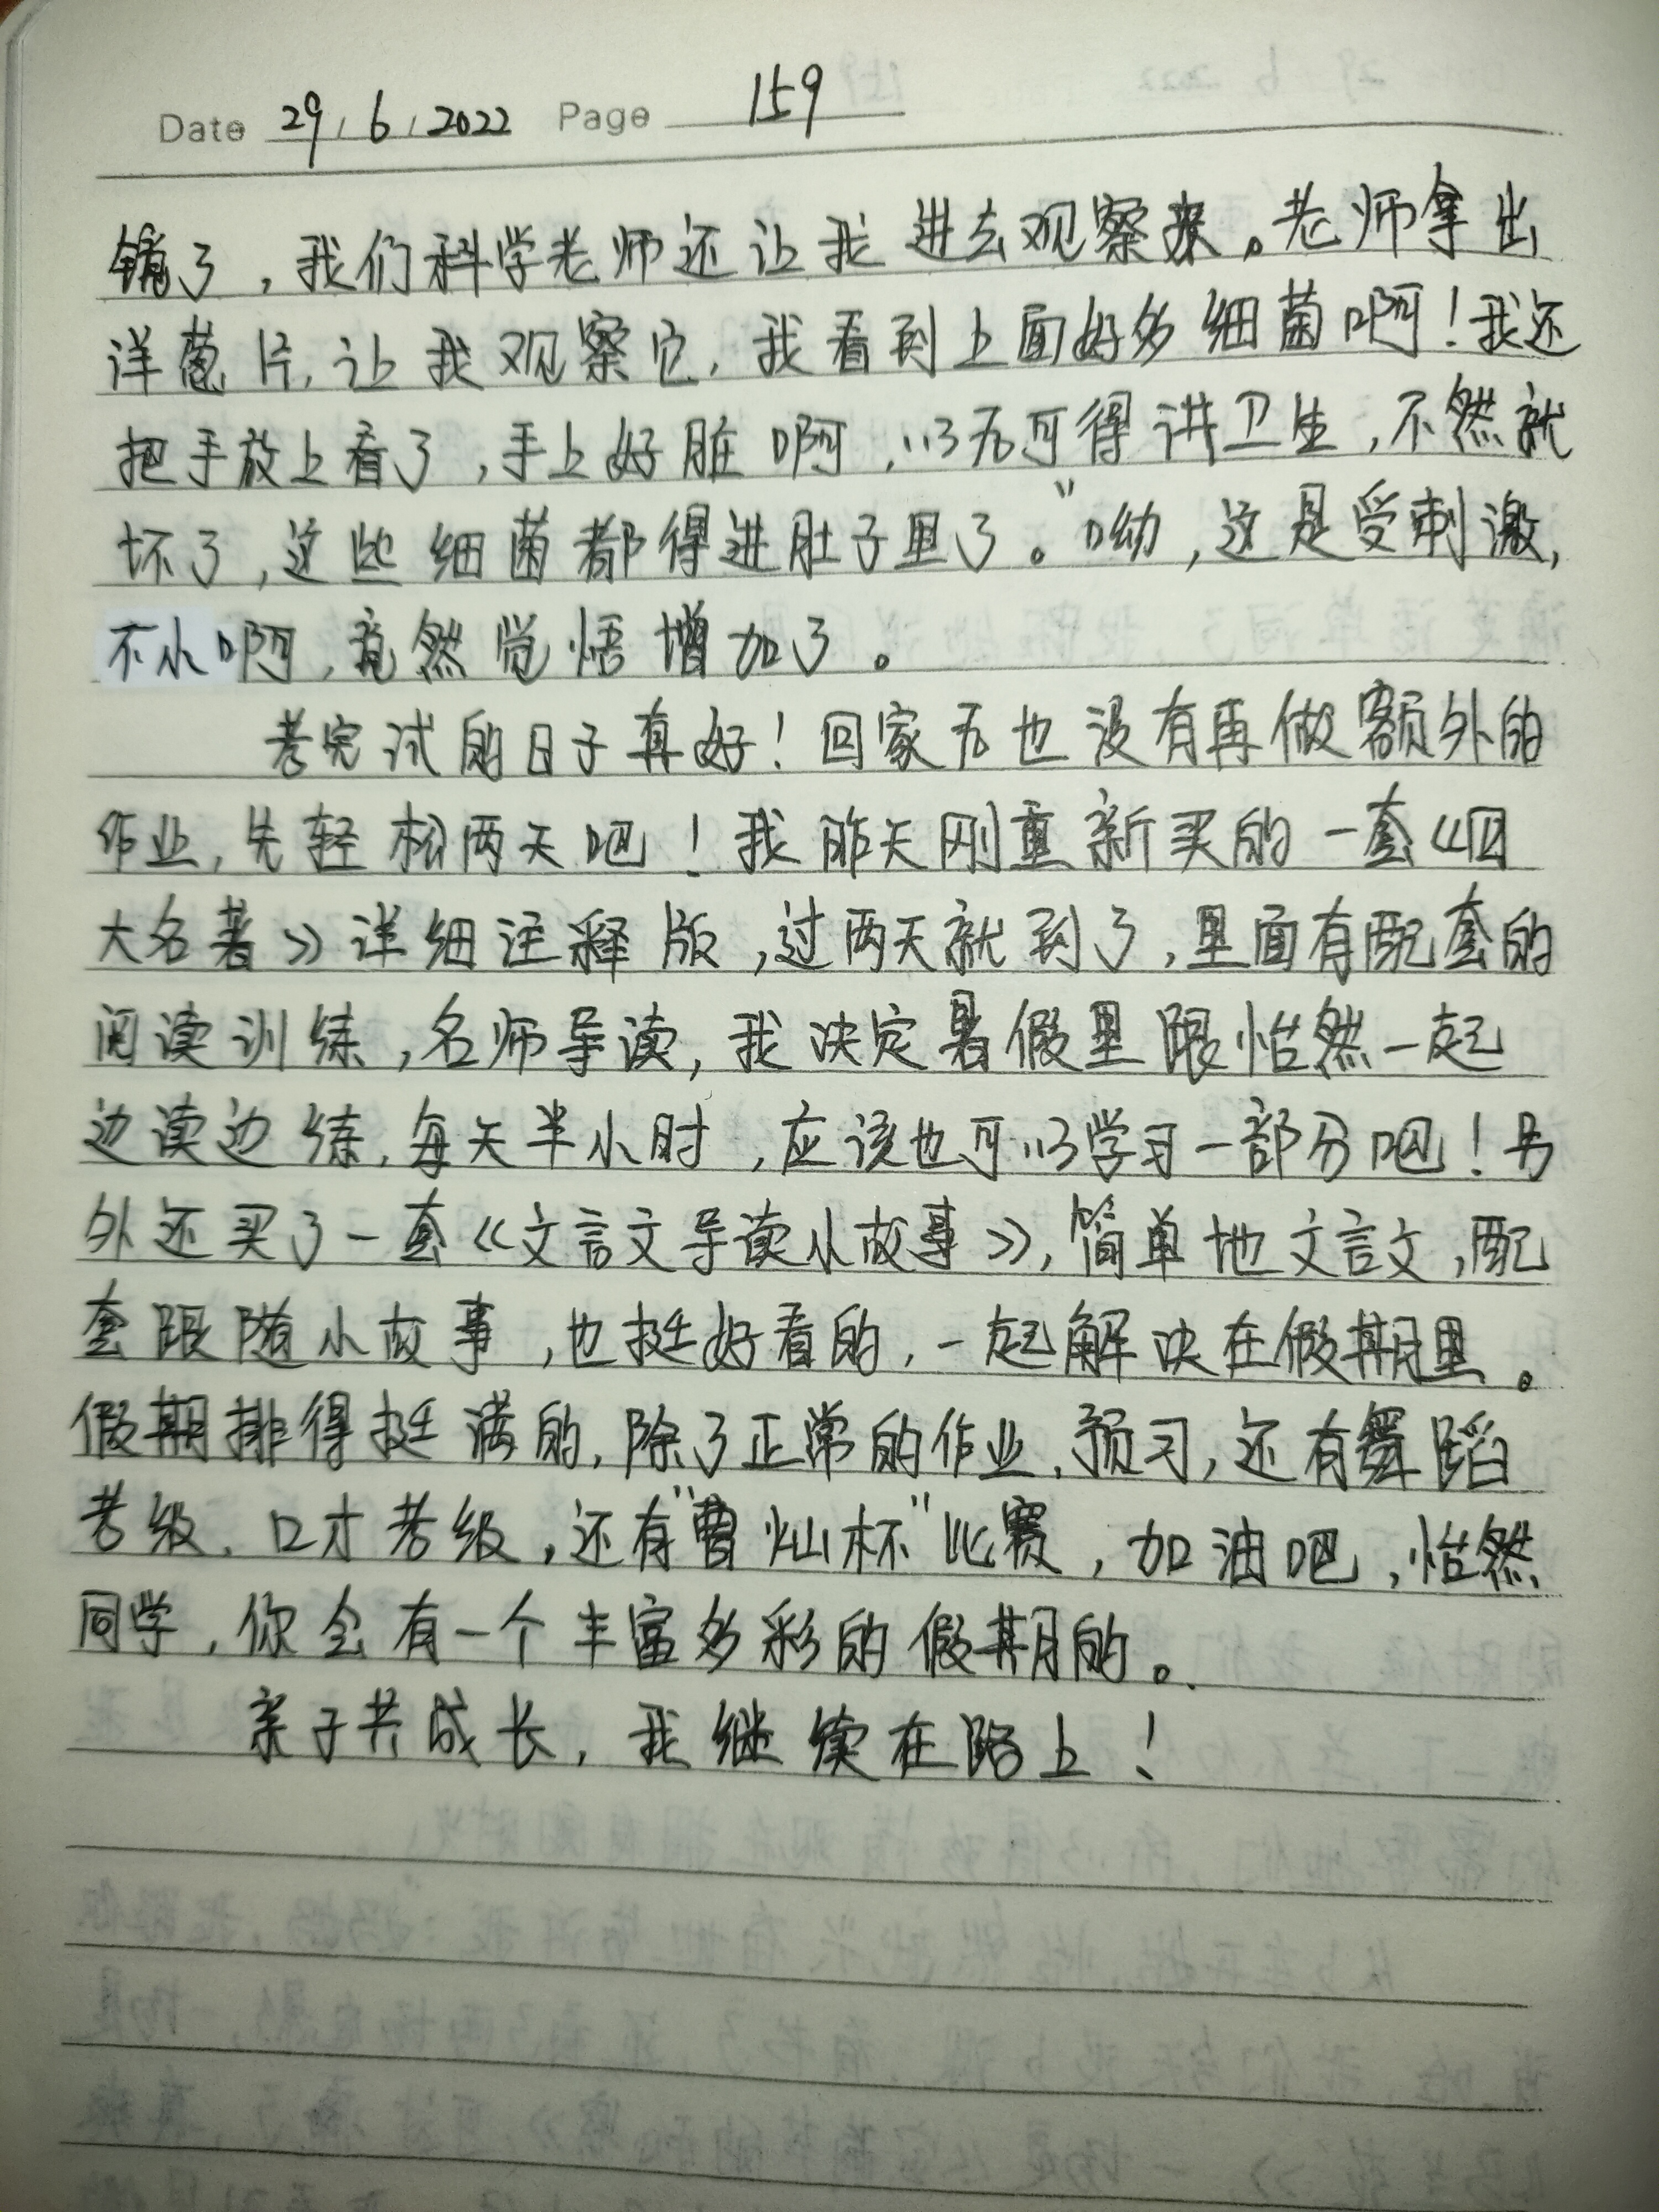 Date 29 / 6 / 2022 Page 159
镜了，我们科学老师还让我进去观察来。老师拿出
洋葱片，让我观察它，我看到上面好多细菌啊！我还
把手放上看了，手上好脏啊，以后可得讲卫生，不然就
坏了，这些细菌都得进肚子里了。”呦，这是受刺激，
不小啊，竟然觉悟增加了。
考完试的日子真好！回家后也没有再做额外的
作业，先轻松两天吧！我昨天刚重新买的一套《四
大名著》详细注释版，过两天就到了，里面有配套的
阅读训练，名师导读，我决定暑假里跟怡然一起
边读边练，每天半小时，应该也可以学习一部分吧！另
外还买了一套《文言文导读小故事》，简单地文言文，配
套跟随小故事，也挺好看的，一起解决在假期里。
假期排得挺满的，除了正常的作业、预习，还有舞蹈
考级、口才考级，还有“曹灿杯”比赛，加油吧，怡然
同学，你会有一个丰富多彩的假期的。
亲子共成长，我继续在路上！